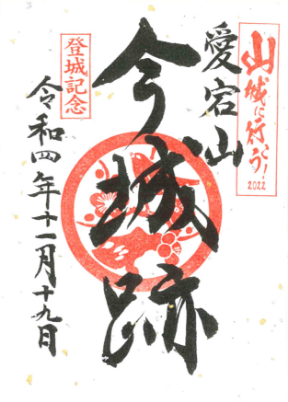 山城に行こう！
2022
愛宕山
今城跡
登城記念
令和四年十一月十九日